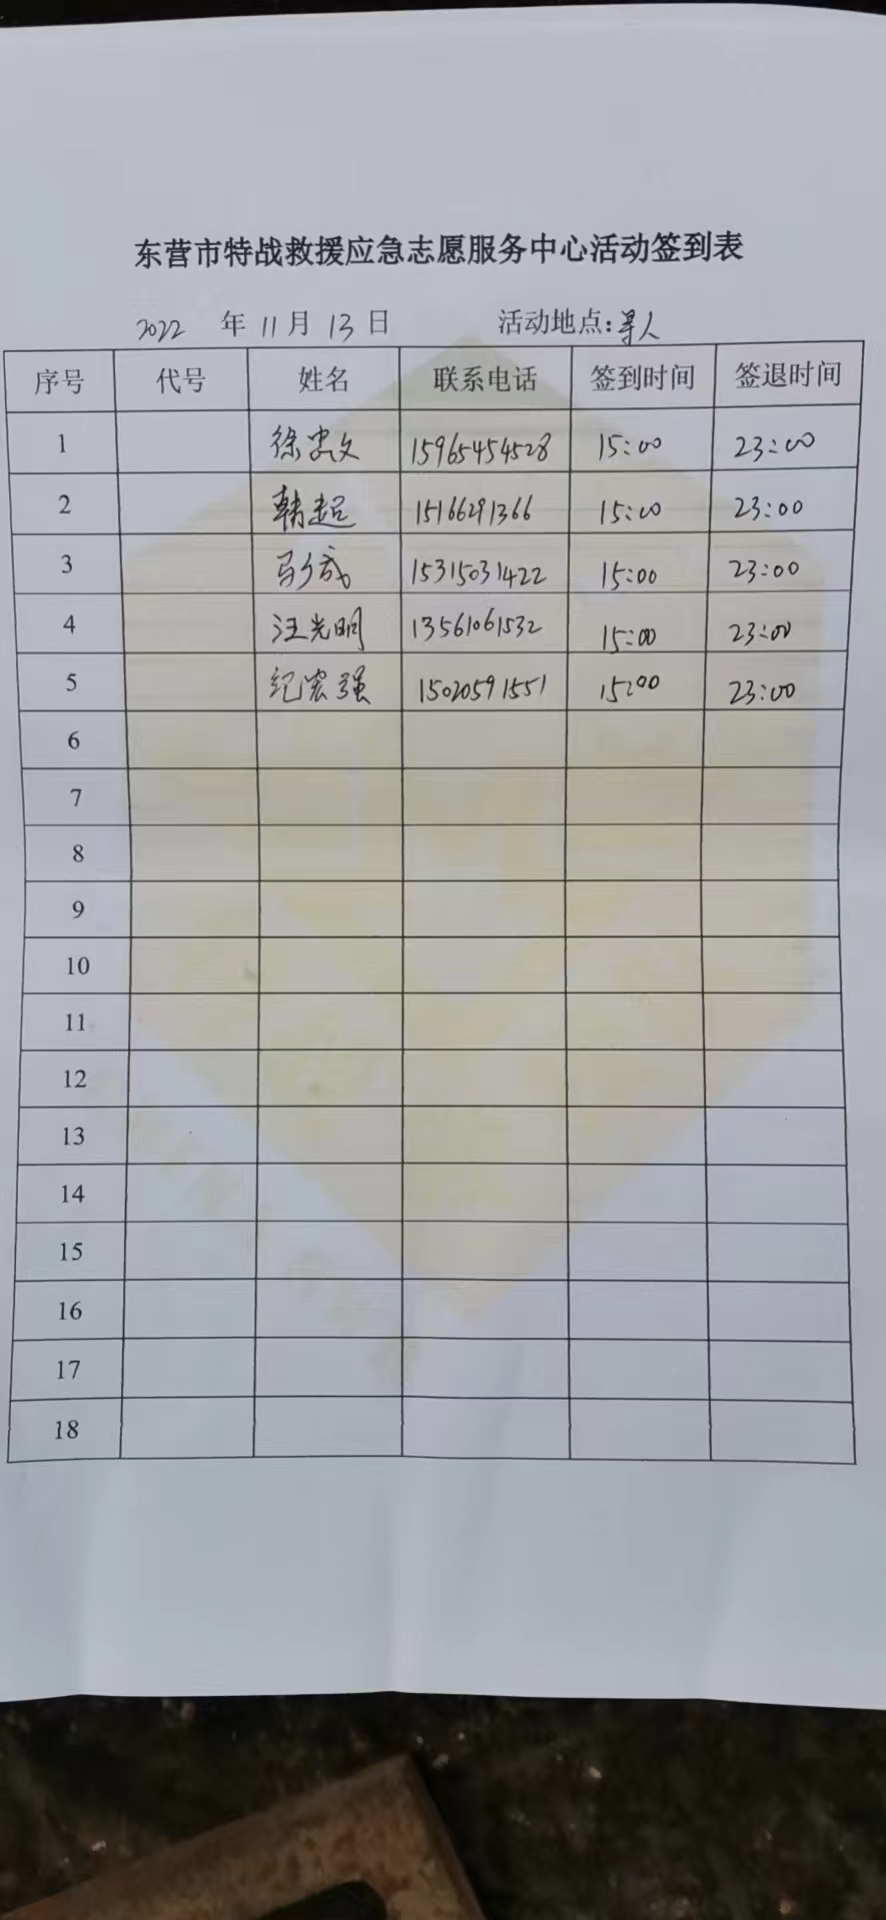 东营市特战救援应急志愿服务中心活动签到表
2022 年 11 月 13 日 活动地点:寻人
序号 代号 姓名 联系电话 签到时间 签退时间
1 徐忠文 15965454528 15:00 23:00
2 韩超 15166291366 15:00 23:00
3 15315031422 15:00 23:00
4 汪光明 13561061532 15:00 23:00
5 纪宏强 15020591551 15:00 23:00
6
7
8
9
10
11
12
13
14
15
16
17
18